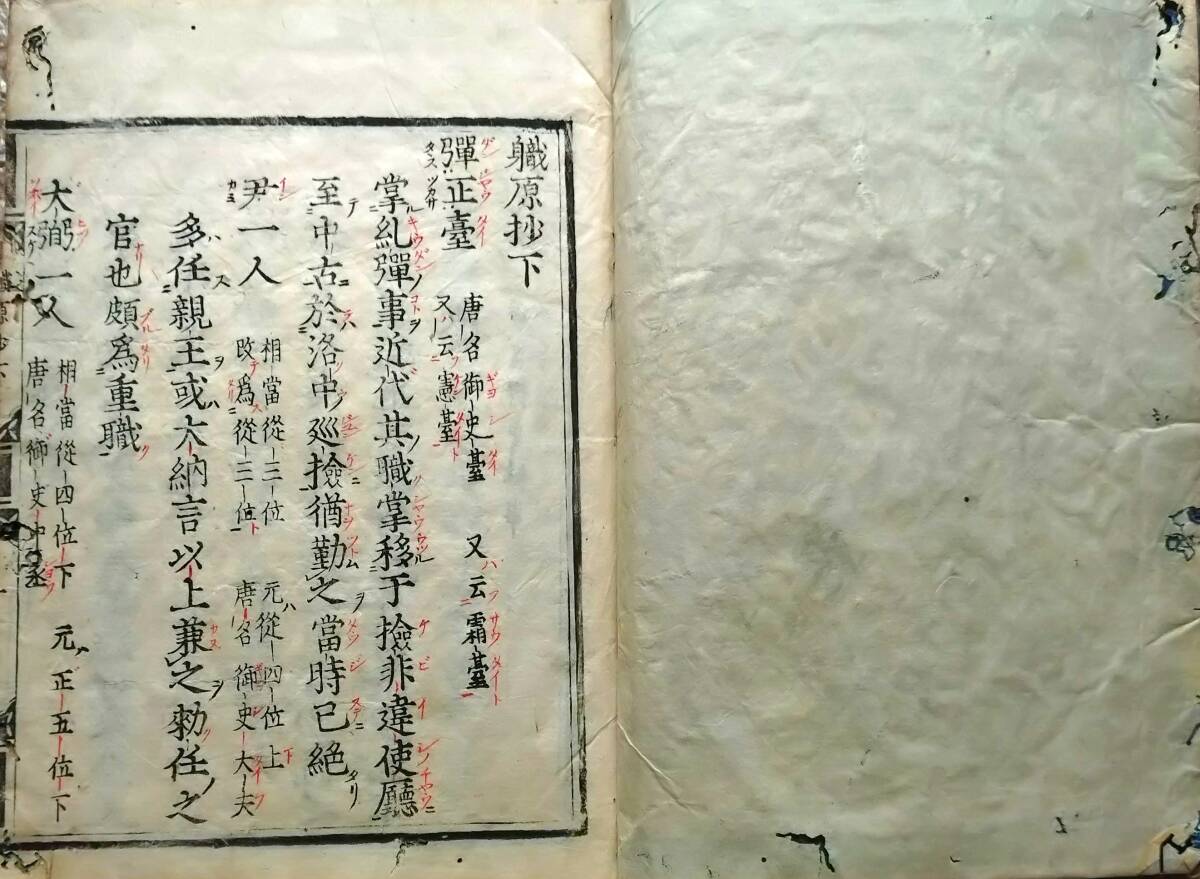 職原抄下
彈正臺
唐名御史臺 又云霜臺
又云憲臺
掌糺彈事近代其職掌移于撿非違使廳
至中古於洛中巡撿猶勤之當時已絕
尹一人
相當從三位 元從四位上
改爲從三位 唐名御史大夫
多任親王或大納言以上兼之勅任之
官也頗爲重職
大弼一人
相當從四位下 元正五位下
唐名御史中丞